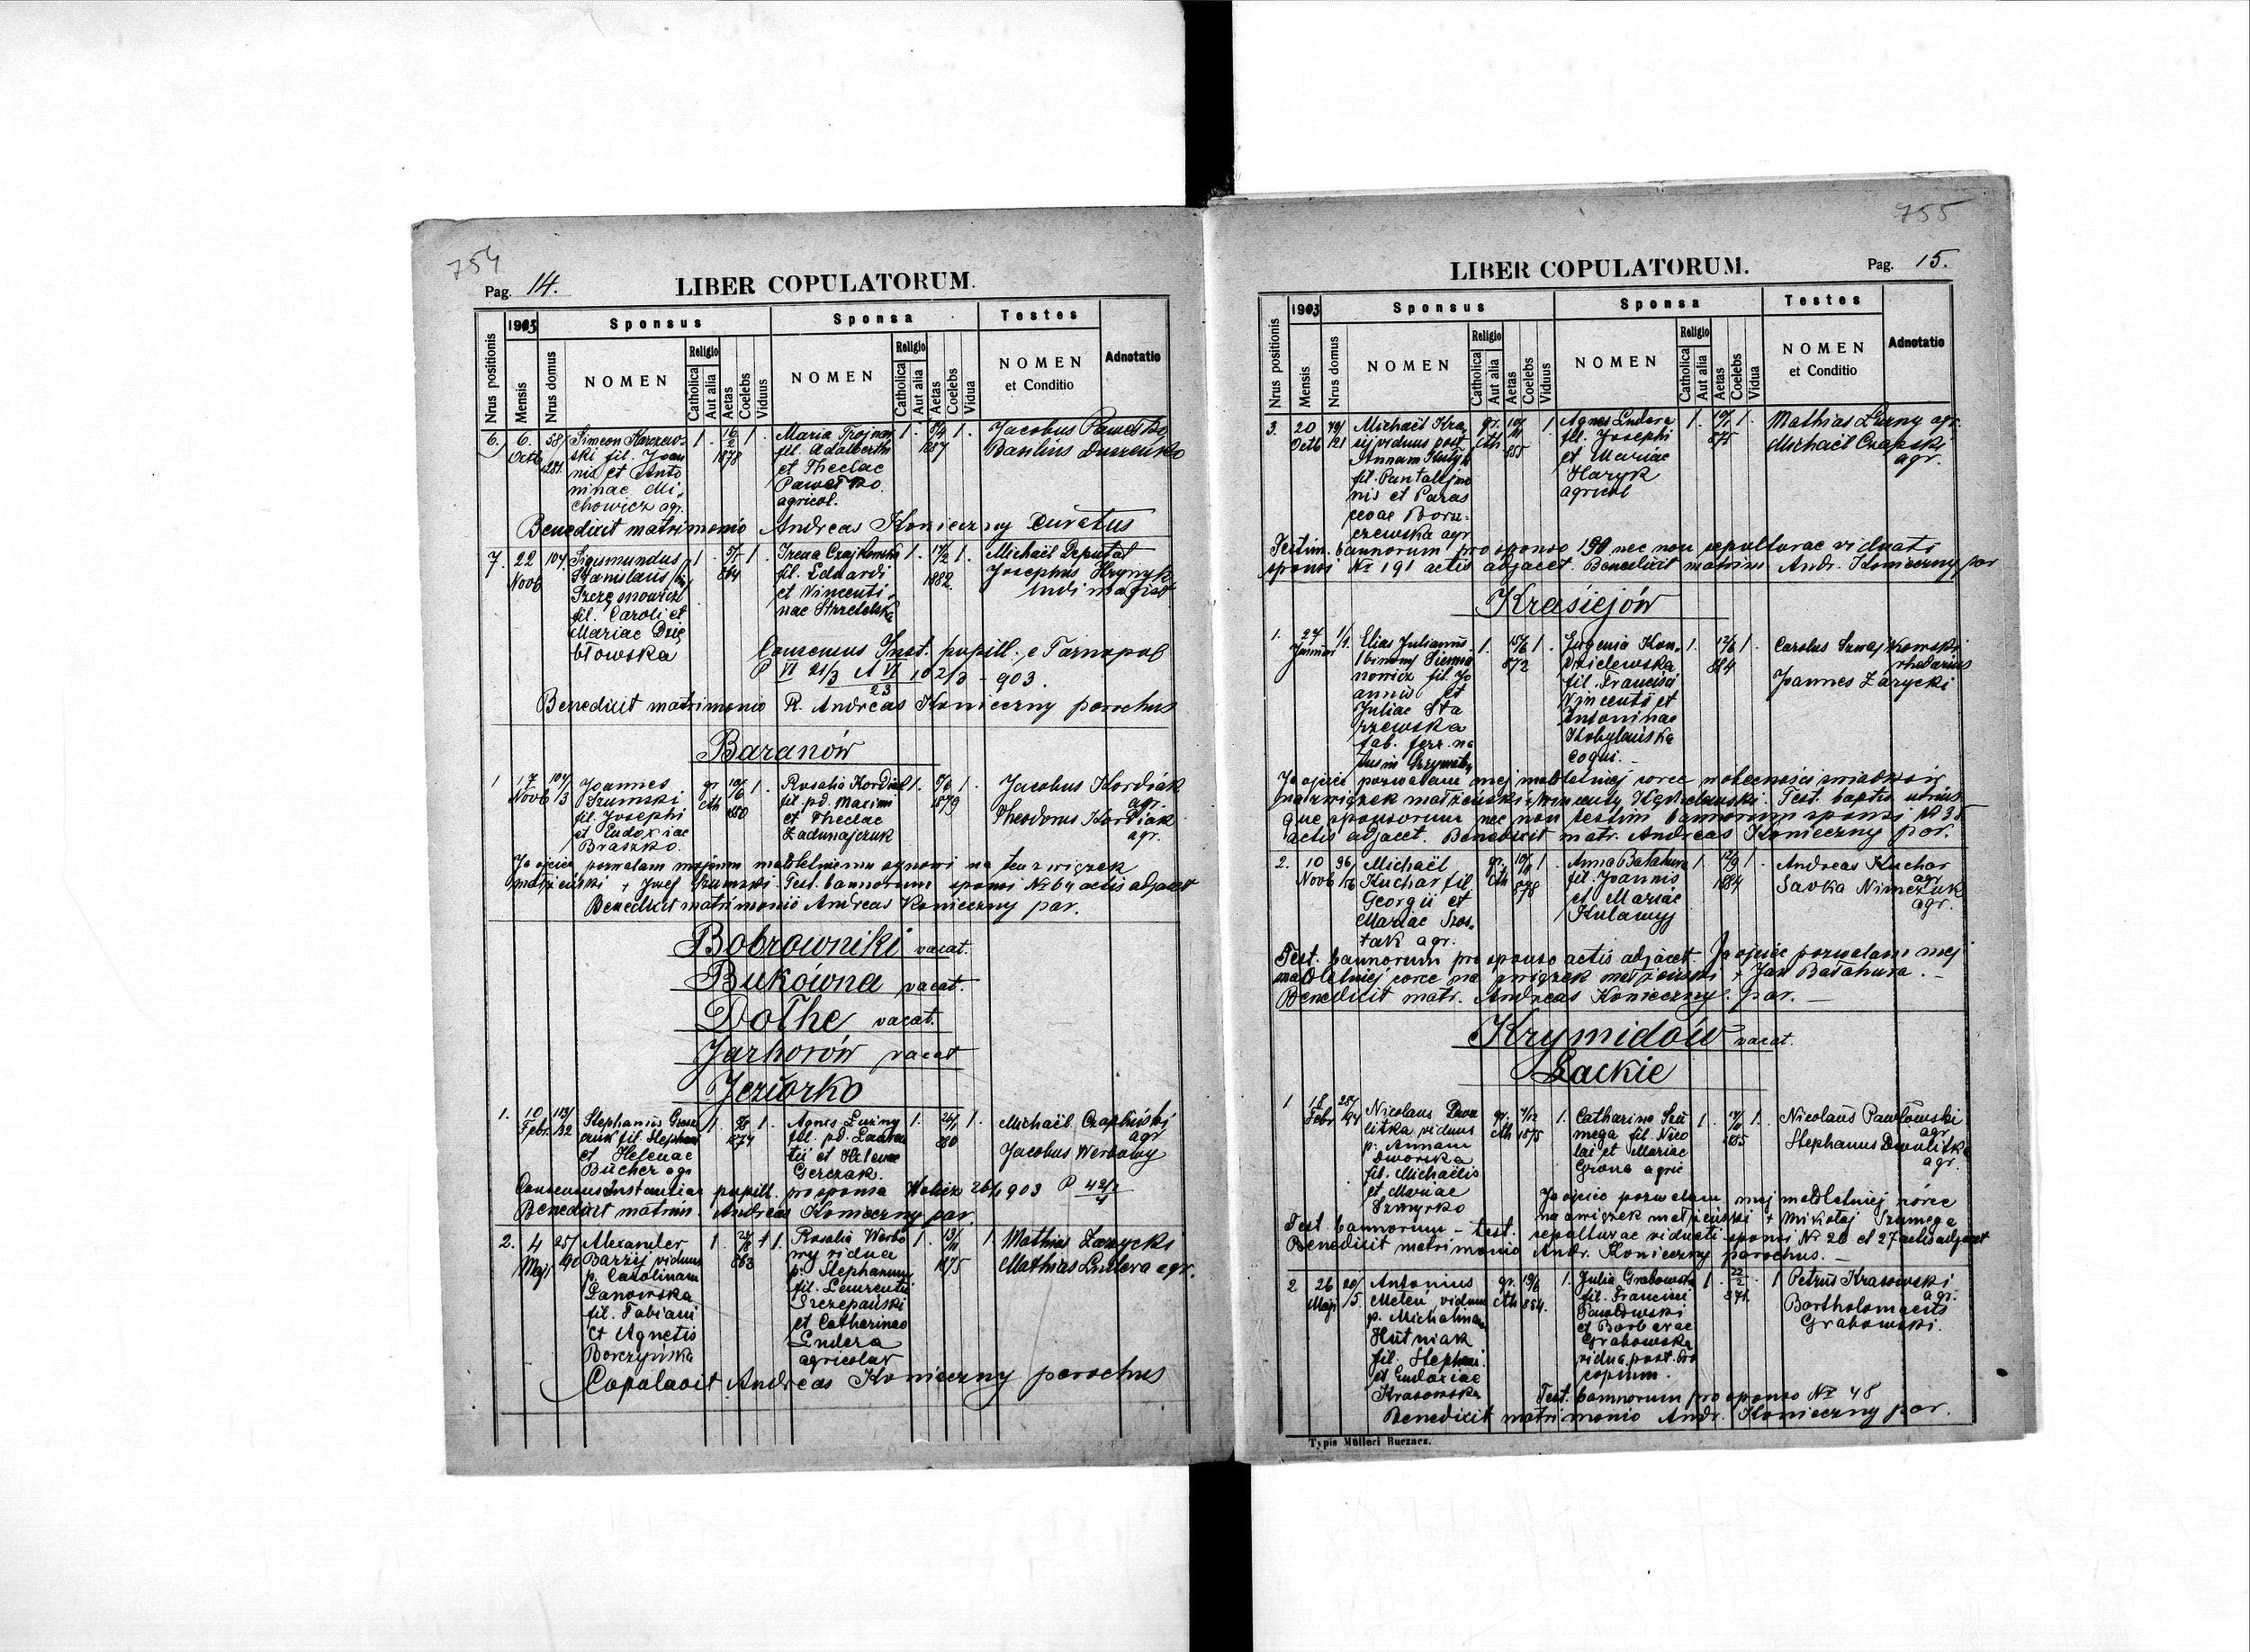 754
Pag. 14.
LIBER COPULATORUM.
Nrus positionis
1903
Mensis
Nrus domus
Sponsus
NOMEN
Religio
Catholica
Aut alia
Aetas
Coelebs
Viduus
Sponsa
NOMEN
Religio
Catholica
Aut alia
Aetas
Coelebs
Vidua
Testes
NOMEN
et Conditio
Adnotatio
6.
6.
Octb
58/
281.
Simeon Karczew-
ski fil. Joan
nis et Anto
ninae Mi-
chowicz agr.
1.
16/2
1878
1.
Maria Trojnar
fil. Adalberth
et Theclae
Pawełko
agricol.
1.
1887
1.
Jacobus Pawełko
Basilius Duszeńko
Benedixit matrimonio Andreas Konieczny curatus
7.
22
Novb
104
Sigismundus
Stanislaus
fil. Caroli et
Mariae Dzię
błowska
1.
864
1.
Irena Czajkowska
fil. Eduardi
et Vincenti-
nae
1.
17/2
1882.
1.
Michaël Deputat
Josephus Hrynyk
ludi magist
Consensus Inst. pupill. e Tarnopol
P VI 21/3
903.
Benedixit matrimonio R. Andreas Konieczny parochus
Baranów
1
17
Novb
104/
3
Joannes
Szumski
fil. Josephi
et Eudoxiae
Braszko.
gr.
cth
10/6
880
1.
Rosalia Kordiak
fil. pd. Maximi
et Theclae
Zadunajczuk
1.
8/6
879
1.
Jacobus Kordiak
agr.
Theodorus Kordiak
agr.
Ja ojciec pozwalam mojemu małoletniemu synowi na ten związek
małżeński + Józef Szumski. Test. bannorum sponsi № 64 actis adjacet
Benedixit matrimonio Andreas Konieczny par.
Bobrowniki vacat.
Bukówna vacat.
Dołhe vacat.
Jarhorów vacat
Jeziorko
1.
10
Febr.
113/
132
Stephanus
fil. Stephani
et Helenae
Bucher agr
1.
1874
1.
Agnes Luźny
fil. pd. Lauren
tii et Helenae
Gerczak.
1.
880
1.
Michaël Czapliński
agr
Jacobus Werbowy
Consensus Instantiae pupill. pro sponsa Halicz 903 P
Benedixit matrim. Andreas Konieczny par.
2.
4
Maji
25/
40
Alexander
Barzij viduus
p. Carolinam
Danowska
fil. Fabiani
et Agnetis
Borczyńska
1.
863
1.
Rosalia Werbo
wy vidua
p. Stephanum
fil. Laurentii
Szczepański
et Catharinae
Endera
agricolar
1.
13/11
1875
1
Mathias Zarycki
Mathias Endera agr.
Copulavit Andreas Konieczny parochus
755
LIBER COPULATORUM.
Pag. 15.
Nrus positionis
1903
Mensis
Nrus domus
Sponsus
NOMEN
Religio
Catholica
Aut alia
Aetas
Coelebs
Viduus
Sponsa
NOMEN
Religio
Catholica
Aut alia
Aetas
Coelebs
Vidua
Testes
NOMEN
et Conditio
Adnotatio
3.
20
Octb
79/
121
Michaël Kra
sij viduus post
Annam
fil. Pantalejmo
nis et Paras
cevae Borsz-
czewska agr
gr.
cth
855
1
Agnes Endera
fil. Josephi
et Mariae
Haryk
agricol
1.
875
1.
Mathias agr.
Michaël Czapski
agr.
Testim. bannorum pro sponso 190 nec non sepulturae viduati
sponsi № 191 actis adjacet. Benedixit matrim Andr. Konieczny par
Krasiejów
1.
27
Januari
1/1.
Elias Julianus
Siemia
nowicz fil. Jo
annis et
Juliae Sta
rzewska
1.
15/6
872
1.
Eugenia Kon-
dzielewska
fil. Francisci
Vincentii et
Antoninae
Kobylańska
coqui.
1.
12/6
884
1.
Carolus Szwajkowski
rhedarius
Joannes Zarycki
Ja ojciec pozwalam mej małoletniej córce w obecności świadków
na związek małżeński + Wincenty Kądzielewski. Test. baptis. utrius
que sponsorum nec non testim bannorum sponsi № 35
actis adjacet. Benedixit matr. Andreas Konieczny par.
2.
10
Novb
96/
156
Michaël
Kuchar fil
Georgii et
Mariae Szos-
tak agr.
gr.
cth
10/11
878
1.
Anna Bałahura
fil. Joannis
et Mariae
Kulawyj
1.
12/9
1884
1.
Andreas Kuchar
agr
Savka Nimczuk
agr.
Test. bannorum pro sponso actis adjacet. Ja ojciec pozwalam mej
małoletniej córce na związek małżeński + Jan Bałahura.
Benedixit matr. Andreas Konieczny. par.
Krymidów vacat.
Łackie
1
18
Febr
28/
94
Nicolaus Dwu
litka viduus
p. Annam
Dworska
fil. Michaëlis
et Mariae
Szmyrko
gr.
cth
9/12
1875
1.
Catharina Szu
mega fil. Nico
lai et Mariae
Grona agric
1.
885
1.
Nicolaus Pawłowski
agr
Stephanus Dwulitka
agr.
Ja ojciec pozwalam mej małoletniej córce
na związek małżeński + Mikołaj Szumega
Test. bannorum - test. sepulturae viduati sponsi № 26 et 27 actis adjacet
Benedixit matrimonio Andr. Konieczny parochus.
2
26
Maji
20/
5.
Antonius
Meteń viduus
p. Michalinam
Hutniak
fil. Stephani
et Eudoxiae
Krasowska
gr.
cth
19/6
864.
1.
Julia Grabowska
fil. Francisci
Pawłowski
et Barbarae
Grabowska
vidua post. Pro
copium.
1.
22/2
871.
1
Petrus Krasowski
agr.
Bartholomaeus
Grabowski.
Test. bannorum pro sponso № 48
Benedixit matrimonio Andr. Konieczny par.
Typis Mülleri Buczacz.